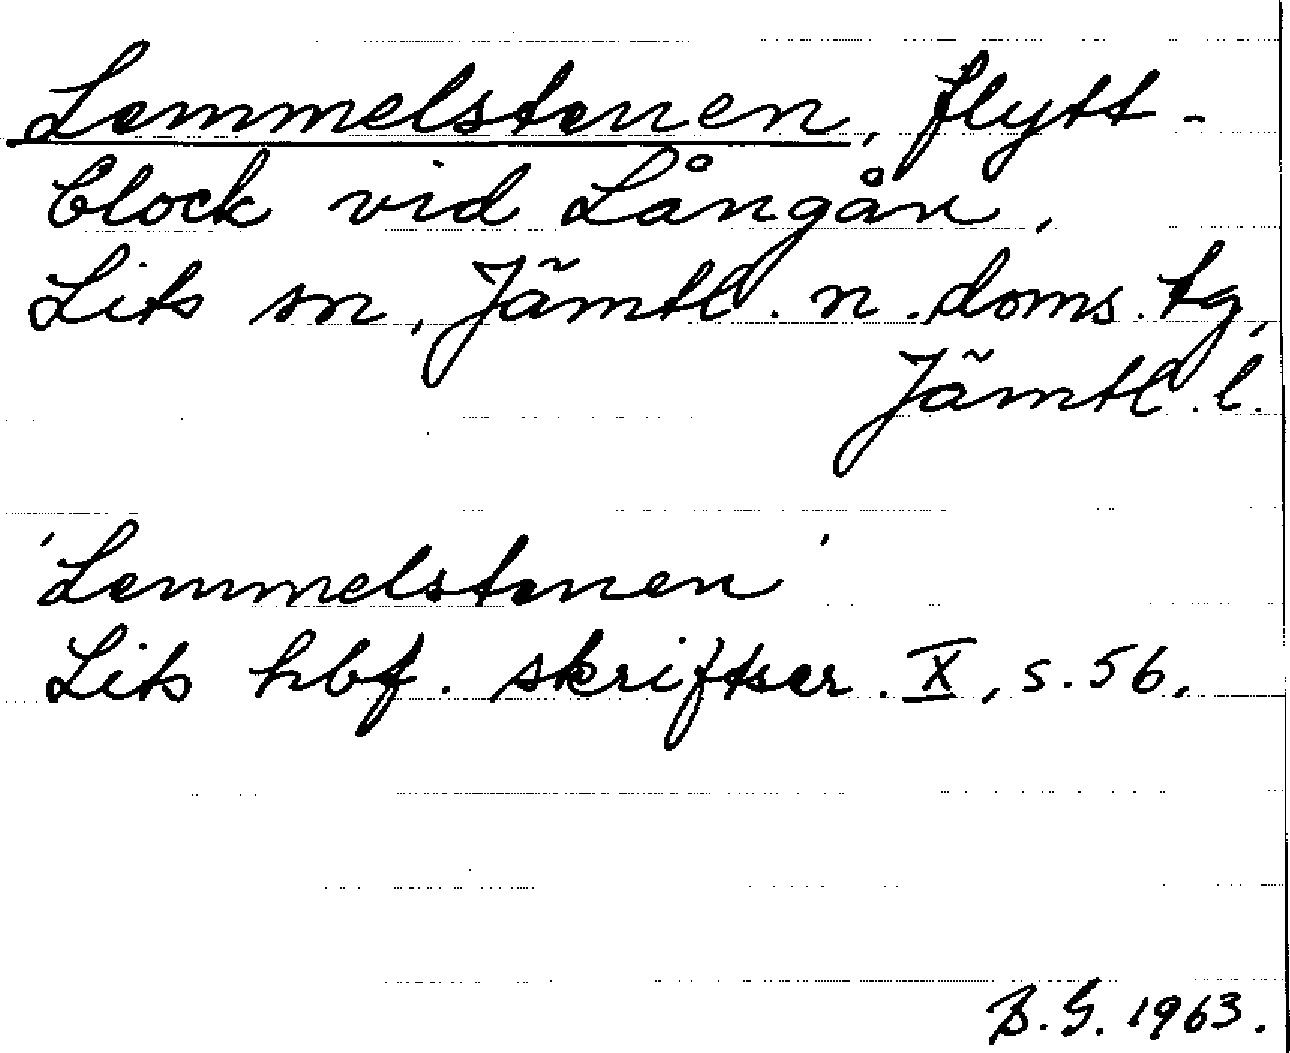 Lemmelstenen, flytt-
block vid Långån,
Lits sn, Jämtl. n. doms. tg,
Jämtl. l.
'Lemmelstenen'
Lits hbf. skriftser. X, s. 56.
B. G. 1963.